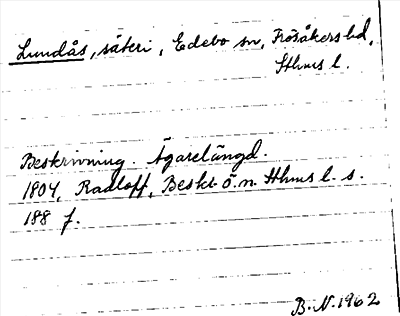 Lundås, säteri, Edebo sn, Frösåkers hd,
Sthms l.
Beskrivning. Ägarelängd.
1804, Radloff, Beskr. ö. n. Sthms l. s.
188 f.
B. N. 1962